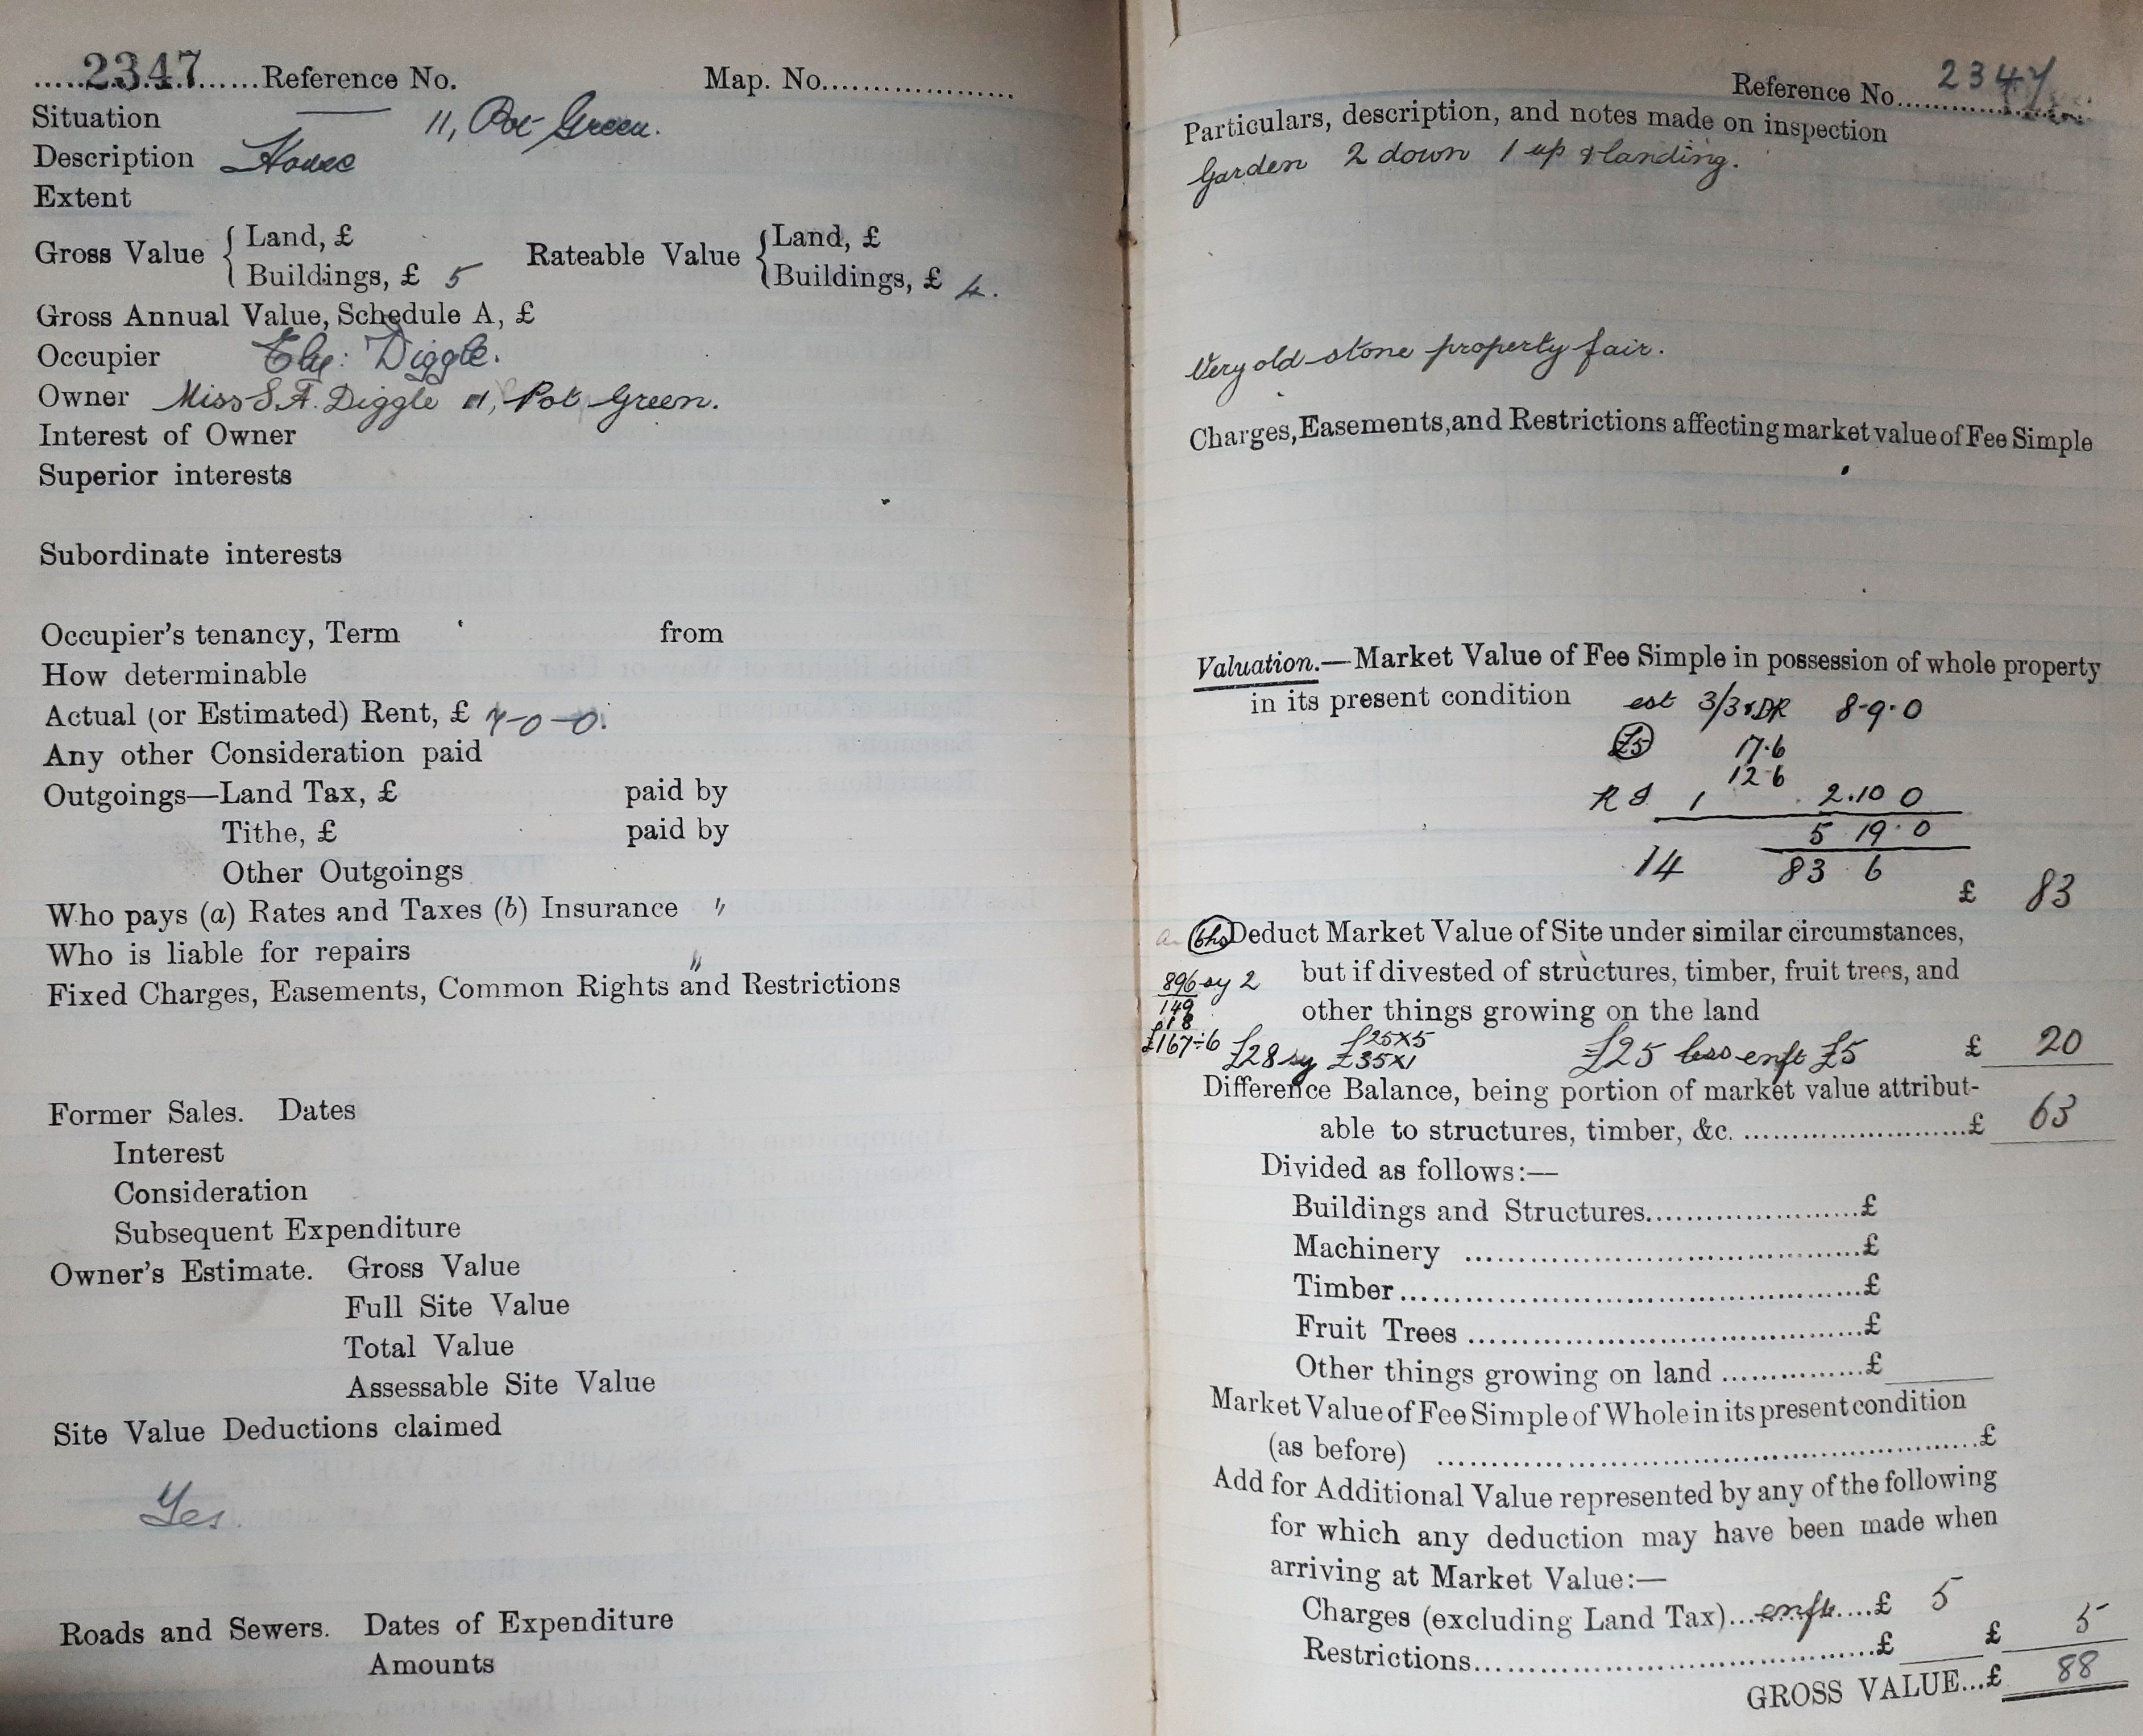 .....2347......Reference No. Map. No....................
Situation 11, Pot Green.
Description House
Extent
Gross Value { Land, £ Rateable Value { Land, £
Buildings, £ 5 Buildings, £ 4.
Gross Annual Value, Schedule A, £
Occupier Eliz: Diggle.
Owner Miss S. A. Diggle 11, Pot Green.
Interest of Owner
Superior interests
Subordinate interests
Occupier's tenancy, Term from
How determinable
Actual (or Estimated) Rent, £ 7-0-0.
Any other Consideration paid
Outgoings—Land Tax, £ paid by
Tithe, £ paid by
Other Outgoings
Who pays (a) Rates and Taxes (b) Insurance "
Who is liable for repairs "
Fixed Charges, Easements, Common Rights and Restrictions
Former Sales. Dates
Interest
Consideration
Subsequent Expenditure
Owner's Estimate. Gross Value
Full Site Value
Total Value
Assessable Site Value
Site Value Deductions claimed
Yes.
Roads and Sewers. Dates of Expenditure
Amounts
Reference No. 2347
Particulars, description, and notes made on inspection
Garden 2 down 1 up & landing.
Very old stone property fair.
Charges, Easements, and Restrictions affecting market value of Fee Simple
Valuation.—Market Value of Fee Simple in possession of whole property
in its present condition est 3/3 8-9-0
£5 17.6
12-6
1 2.10 0
5 19.0
14 83 6
£ 83
Deduct Market Value of Site under similar circumstances,
896 say 2 but if divested of structures, timber, fruit trees, and
149 other things growing on the land
18
£167÷6 £28 say £25x5 £25 less enft £5 £ 20
£35x1
Difference Balance, being portion of market value attribut-
able to structures, timber, &c. ........................£ 63
Divided as follows:—
Buildings and Structures......................£
Machinery ......................................£
Timber............................................£
Fruit Trees .....................................£
Other things growing on land ...............£
Market Value of Fee Simple of Whole in its present condition
(as before) .....................................................£
Add for Additional Value represented by any of the following
for which any deduction may have been made when
arriving at Market Value:—
Charges (excluding Land Tax)...enft....£ 5
Restrictions.......................................£ £ 5
GROSS VALUE...£ 88